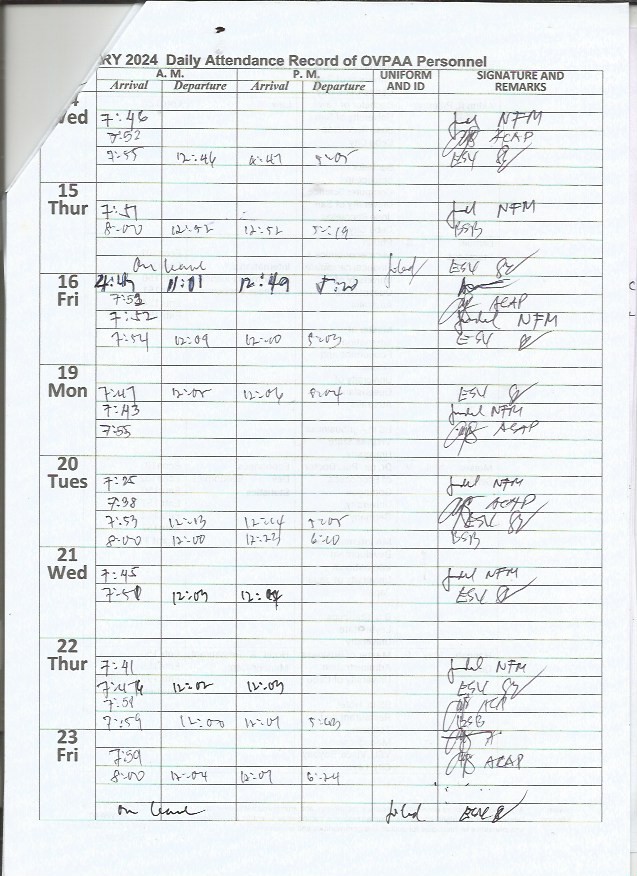 RY 2024 Daily Attendance Record of OVPAA Personnel
A. M. P. M. UNIFORM AND ID SIGNATURE AND REMARKS
Arrival Departure Arrival Departure
4
Wed
7:46 NFM
7:52 ACAP
7:55 12:46 5:05 ESV
15
Thur
7:51 NFM
8:00 12:52 12:52 5:19 BSB
On leave filed ESV
16
Fri
11:01 12:49
7:52 ACAP
7:52 NFM
7:54 12:09 12:10 5:03 ESV
19
Mon
7:47 12:05 12:06 5:04 ESV
7:43 NFM
7:55 ACAP
20
Tues
7:25 NFM
7:38 ACAP
7:53 12:13 12:14 5:05 ESV
8:00 12:00 12:23 6:10 BSB
21
Wed
7:45 NFM
12:03 ESV
22
Thur
7:41 NFM
12:02 12:03 ESV
7:58 ACP
7:59 12:00 12:01 5:03 BSB
23
Fri
7:59 ACAP
8:00 12:04 12:07 6:24
on leave filed ESV